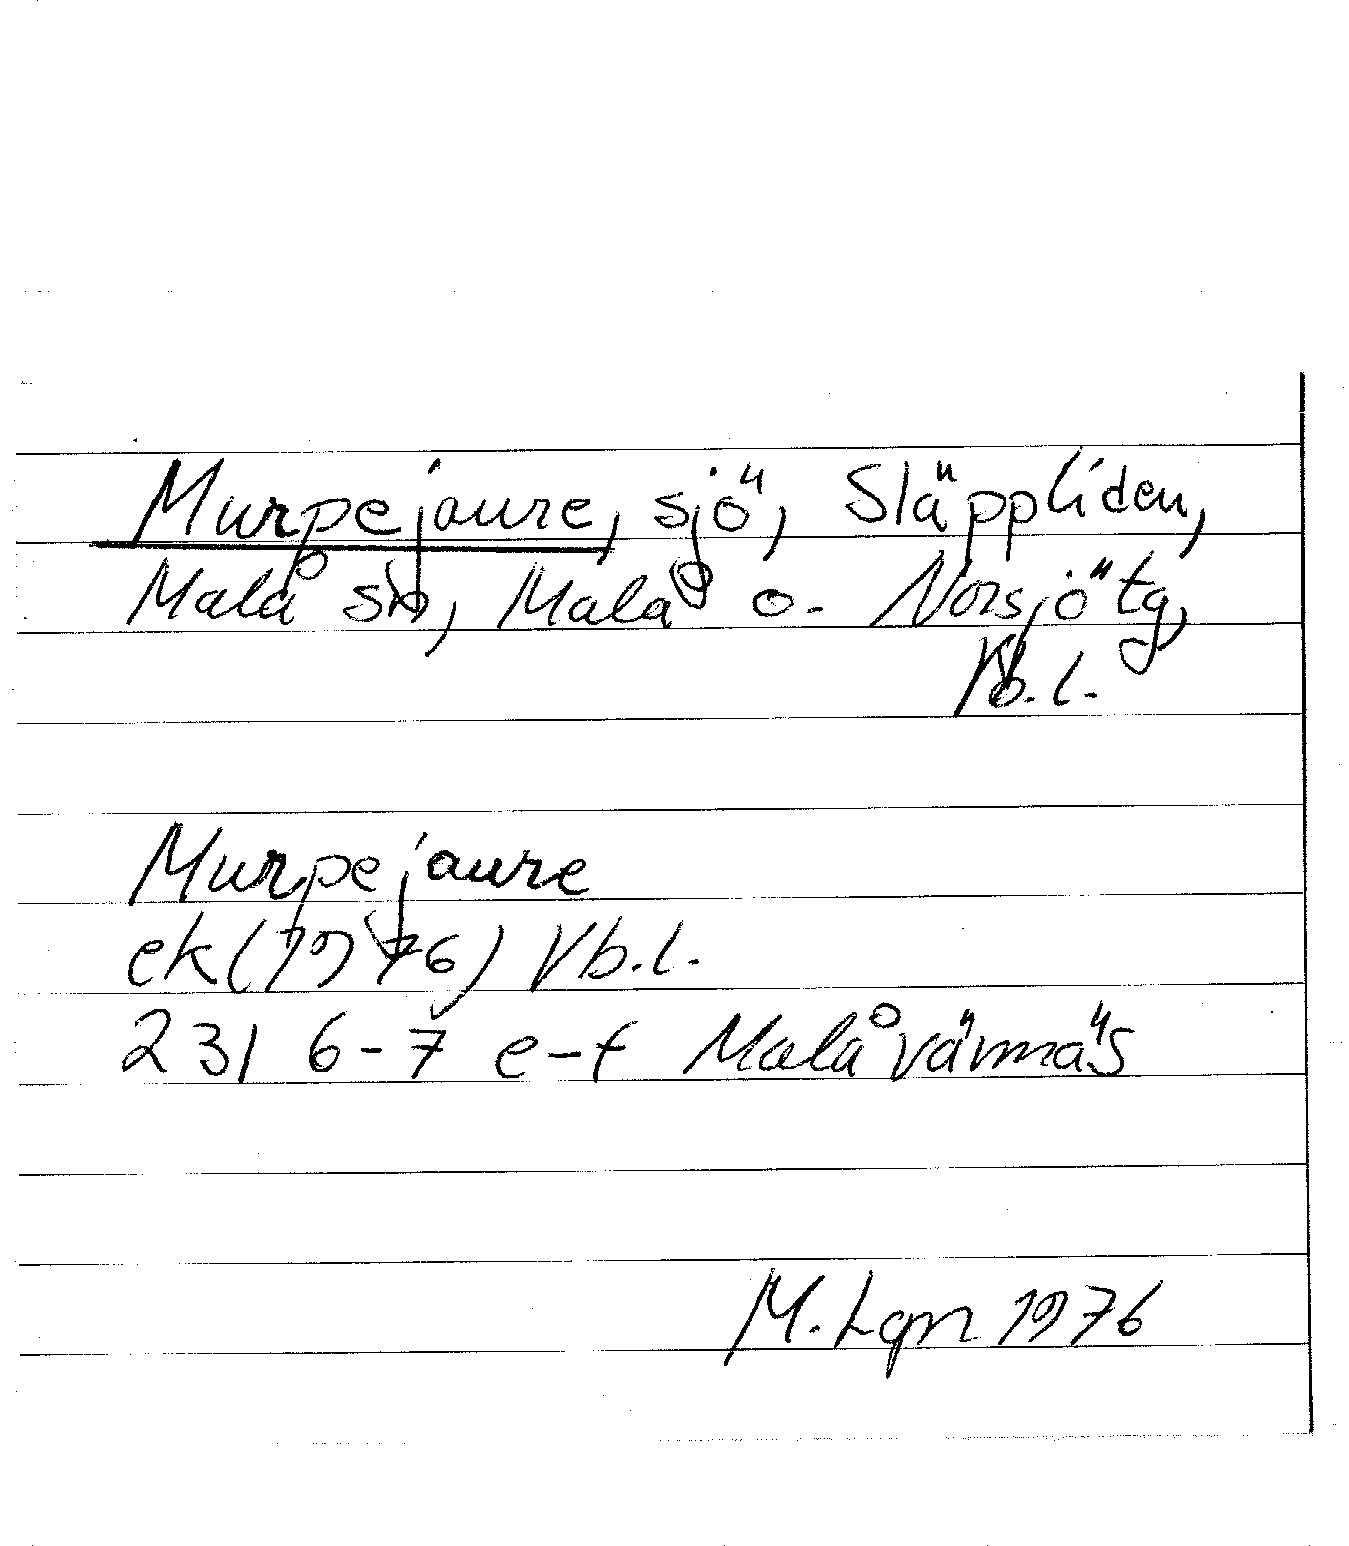 Murpejaure, sjö, Släppliden,
Malå sn, Malå o. Norsjö tg,
Vb.l.
Murpejaure
ek (1976) Vb.l.
231 6-7 e-f Malåvännäs
M. Lgn 1976